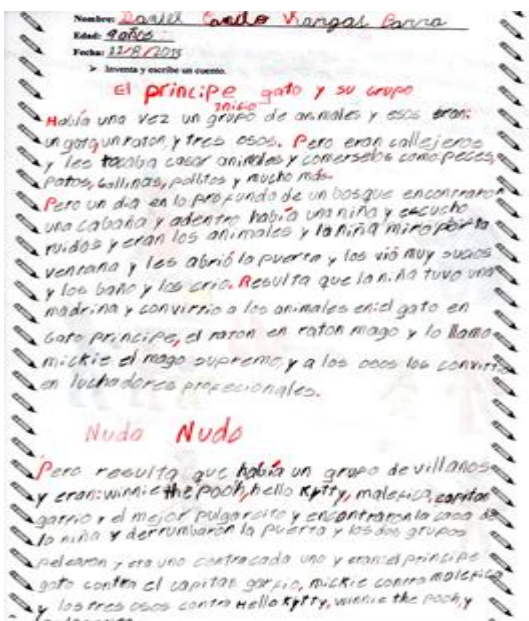 Nombre: Daniel Camilo Vargas Parra
Edad: 9 años
Fecha: 22/8/2015
➤ Inventa y escribe un cuento.
El príncipe gato y su grupo
Inicio
Había una vez un grupo de animales y esos eran:
un gato, un raton, y tres osos. Pero eran callejeros
y les tocaba casar animales y comerselos como peces,
patos, gallinas, pollitos y mucho más.
Pero un dia en lo profundo de un bosque encontraron
una cabaña y adentro había una niña y escucho
ruidos y eran los animales y la niña miro por la
ventana y les abrió la puerta y los vió muy sucios
y los baño y los crio. Resulta que la niña tuvo una
madrina y convirtio a los animales en: el gato en
Gato príncipe, el raton en raton mago y lo llamo
mickie el mago supremo, y a los osos los convirtio
en luchadores profecionales.
Nudo Nudo
Pero resulta que había un grupo de villanos
y eran: winnie the pooh, hello kytty, malefica, capitan
garfio y el mejor pulgarcito y encontraron la casa de
la niña y derrumbaron la puerta y los dos grupos
pelearon y era uno contra cada uno y eran: el príncipe
gato contra el capitan garfio, mickie contra malefica
y los tres osos contra Hello kytty, winnie the pooh, y